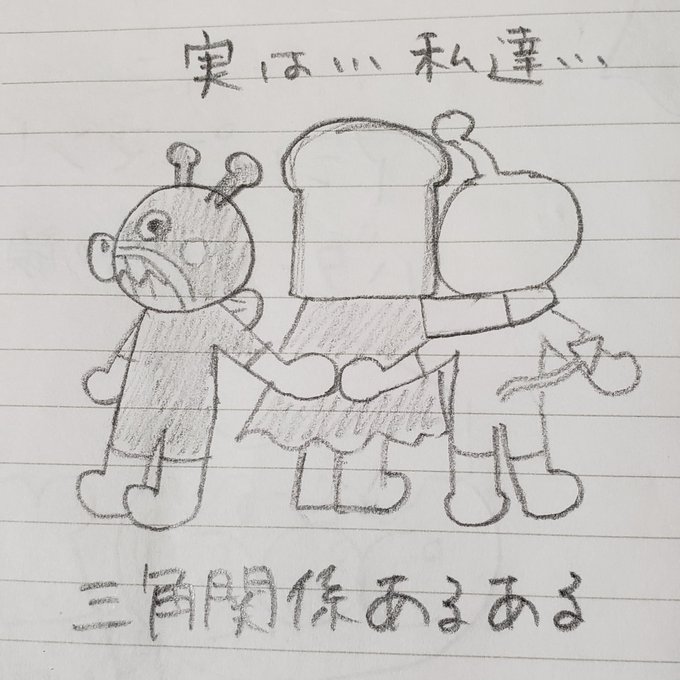 実は… 私達…
三角関係あるある